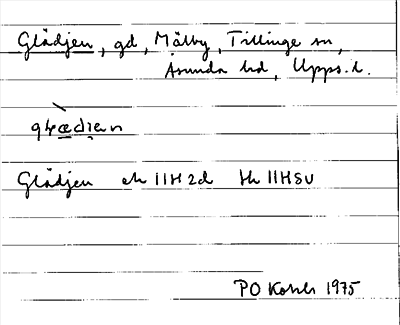 Glädjen, gd, Mälby, Tillinge sn,
Asunda hd, Upps. l.
glædjen
Glädjen ek 11H2d th 11H5v
PO 1975